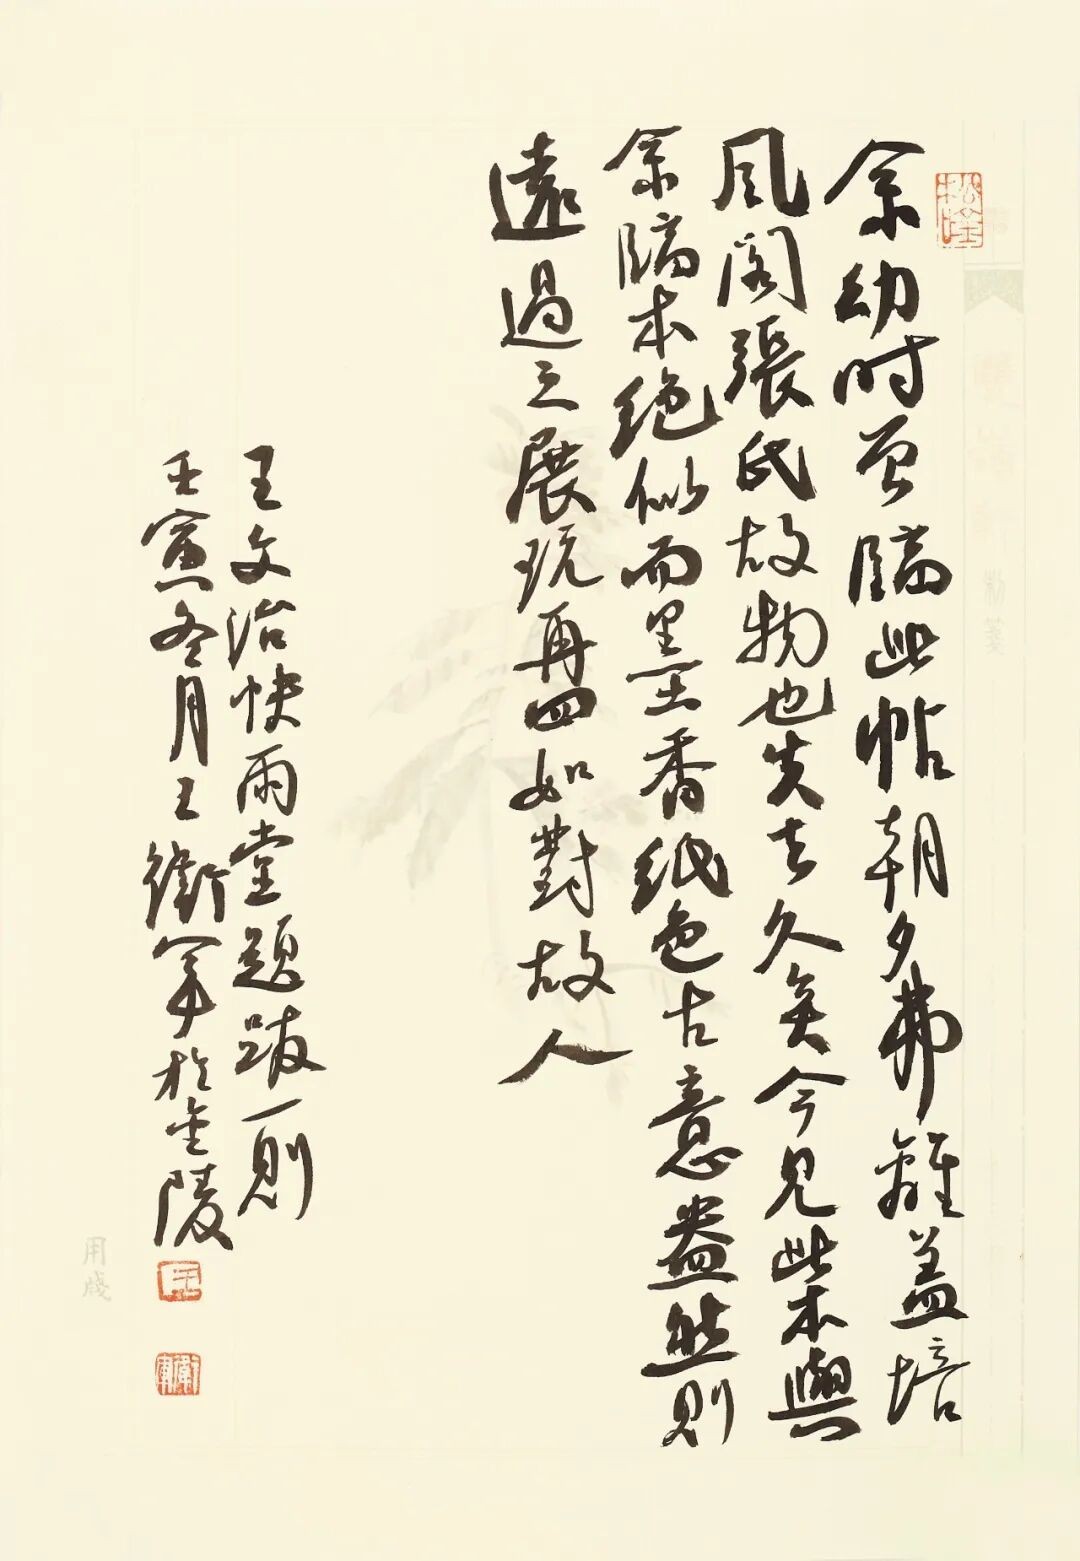 余幼时曾臨此帖朝夕弗離蓋培
風閣張氏故物也失去久矣今見此本與
余臨本絶似而墨香纸色古意盎然則
遠過之展玩再四如對故人
王文治快雨堂題跋一則
壬寅冬月王衛軍於金陵
用箋